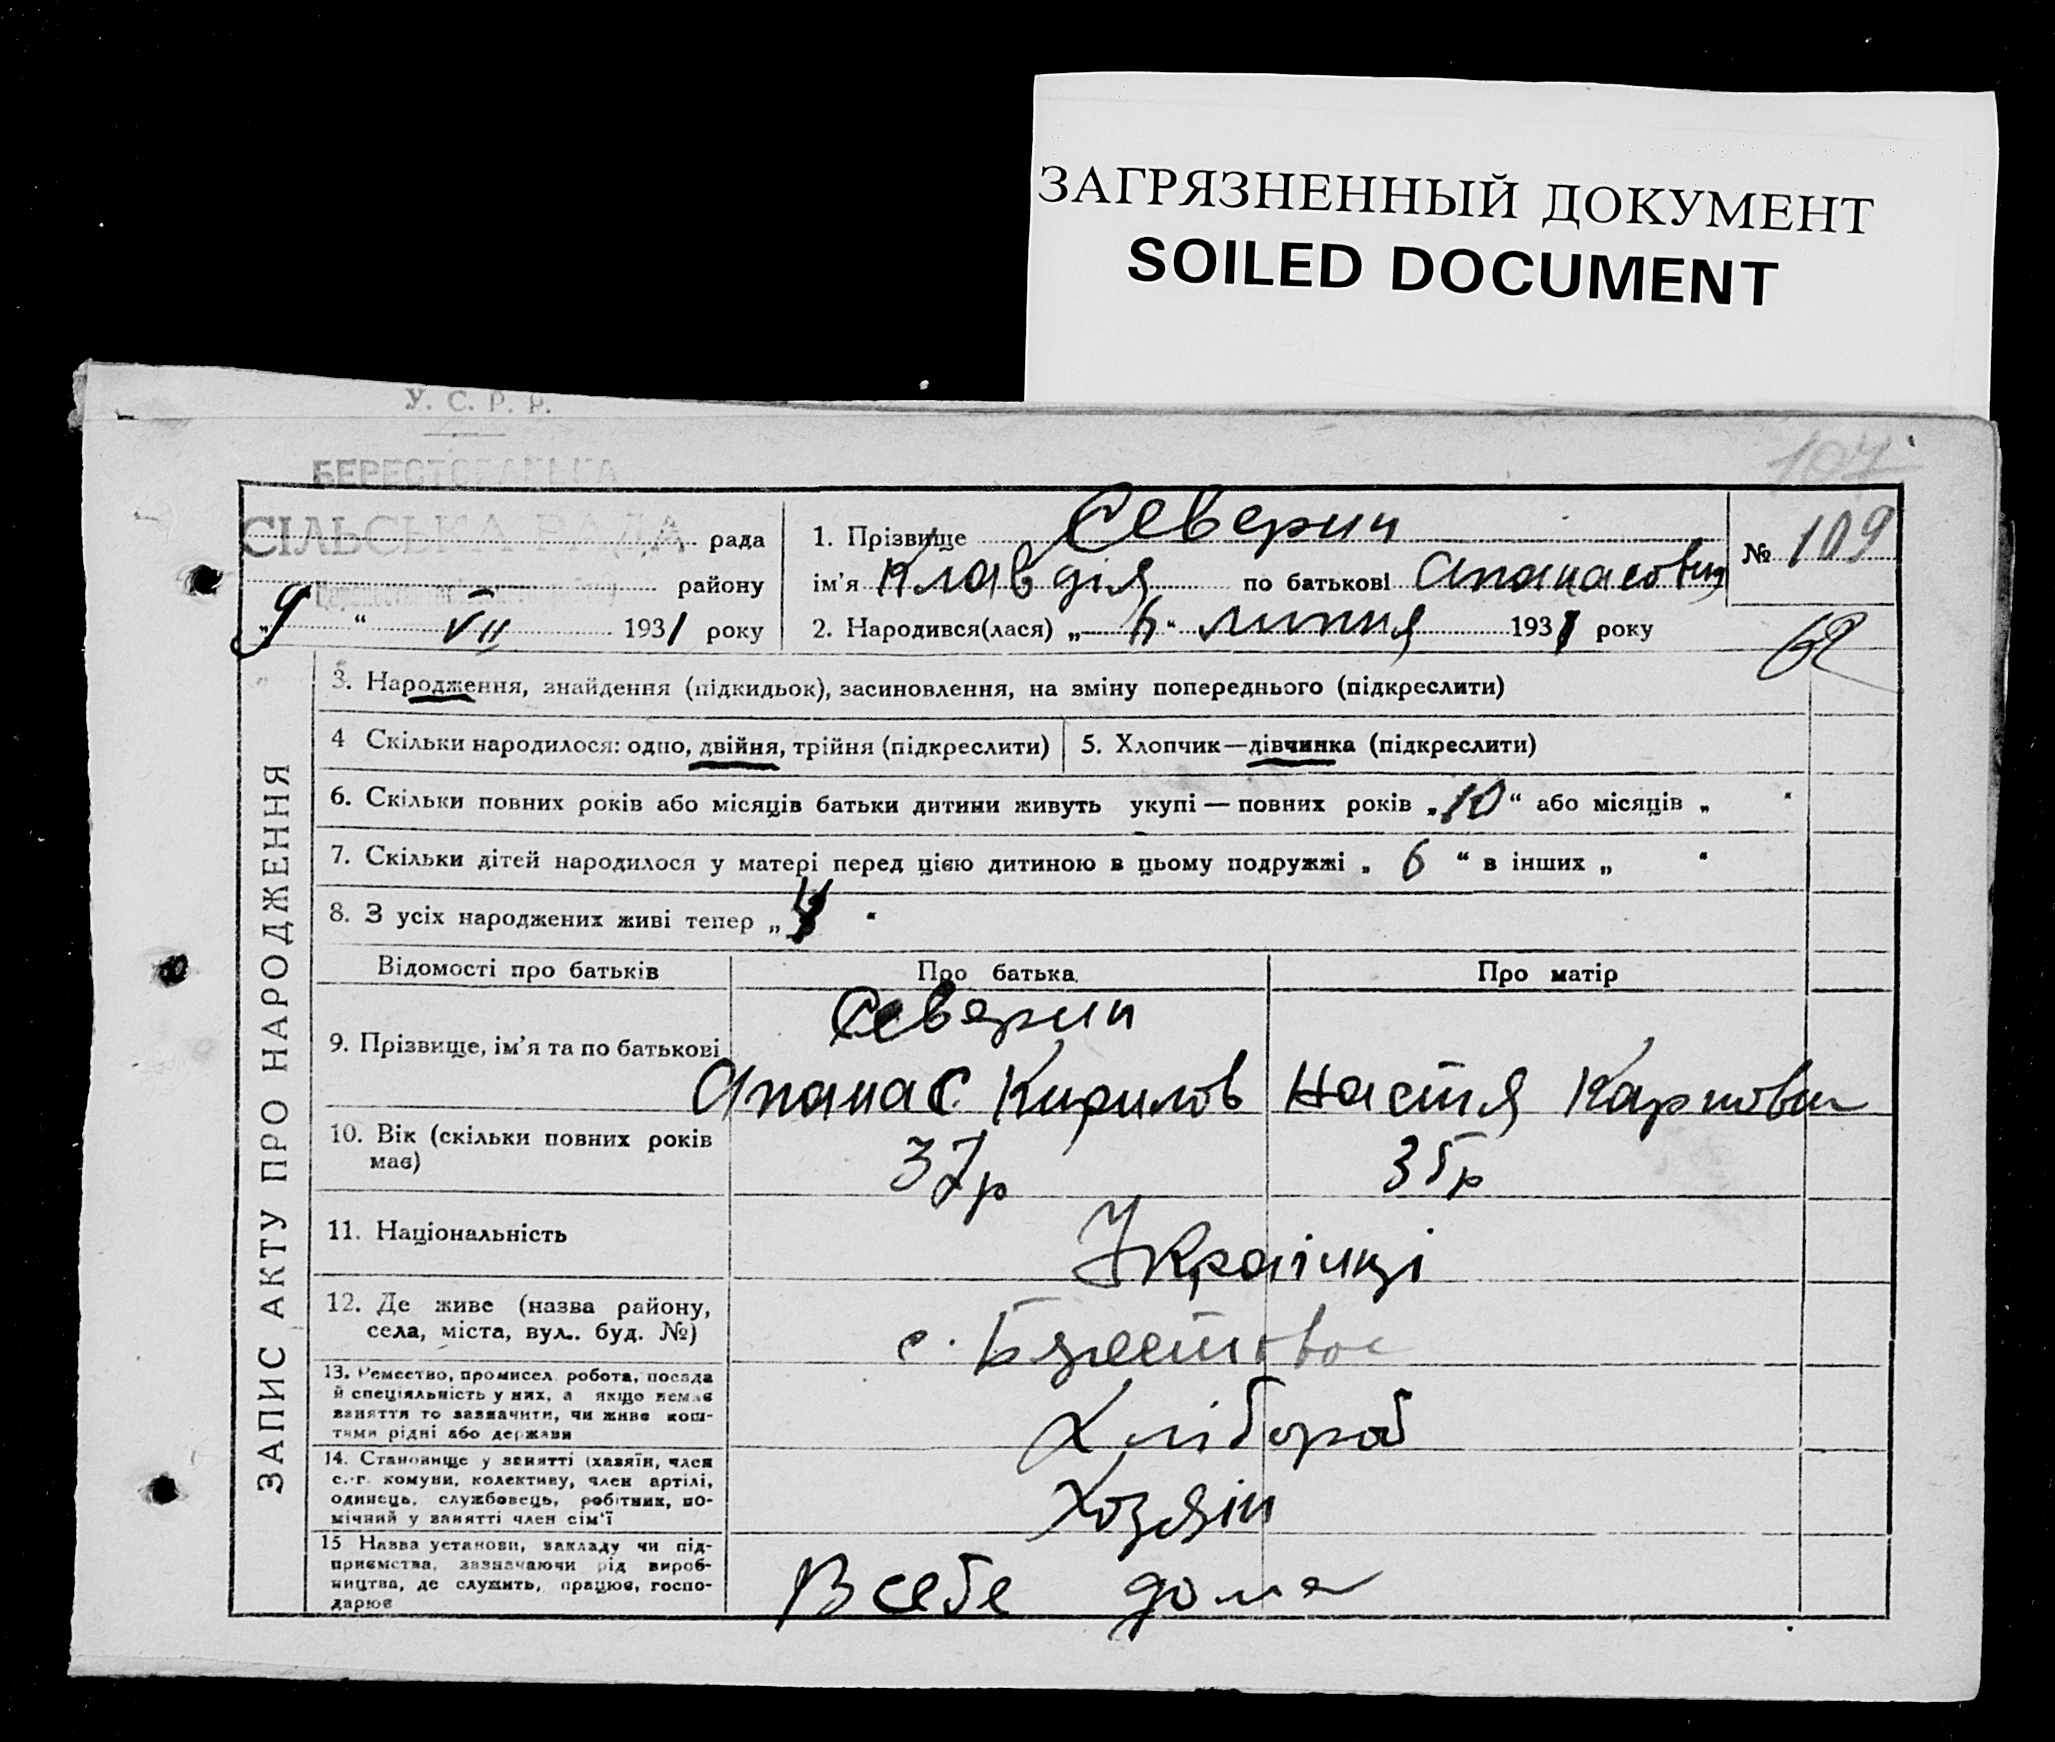 ЗАГРЯЗНЕННЫЙ ДОКУМЕНТ
SOILED DOCUMENT
У. С. Р. Р.
БЕРЕСТОВАНСЬКА
СІЛЬСЬКА РАДА рада
району
„9“ VII 1931 року
1. Прізвище Северин
ім'я Клавдія по батькові Апанасовна
2. Народився(лася) „6“ липня 1931 року
№ 109
107
62
ЗАПИС АКТУ ПРО НАРОДЖЕННЯ
3. Народження, знайдення (підкидьок), засиновлення, на зміну попереднього (підкреслити)
4 Скільки народилося: одно, двійня, трійня (підкреслити)
5. Хлопчик—дівчинка (підкреслити)
6. Скільки повних років або місяців батьки дитини живуть укупі — повних років „10“ або місяців „ “
7. Скільки дітей народилося у матері перед цією дитиною в цьому подружжі „ 6 “ в інших „ “
8. З усіх народжених живі тепер „4 “
Відомості про батьків
Про батька
Про матір
9. Прізвище, ім'я та по батькові
Северин
Апанас Кирилов
Настя Карповн
10. Вік (скільки повних років має)
37р
35р
11. Національність
Українці
12. Де живе (назва району, села, міста, вул.. буд. №)
с. Берестовое
13. Ремество, промисел, робота, посада
й спеціяльність у них, а якщо немає
заняття то зазначити, чи живе кош-
тами рідні або держави
Хлібороб
14. Становище у занятті (хазяїн, член
с.-г. комуни, колективу, член артілі,
одинець, службовець, робітник, по-
мічний у занятті член сім'ї
Хозяін
15 Назва установи, закладу чи під-
приємства, зазначаючи рід вироб-
ництва, де служить, працює, госпо-
дарює
В себе дома